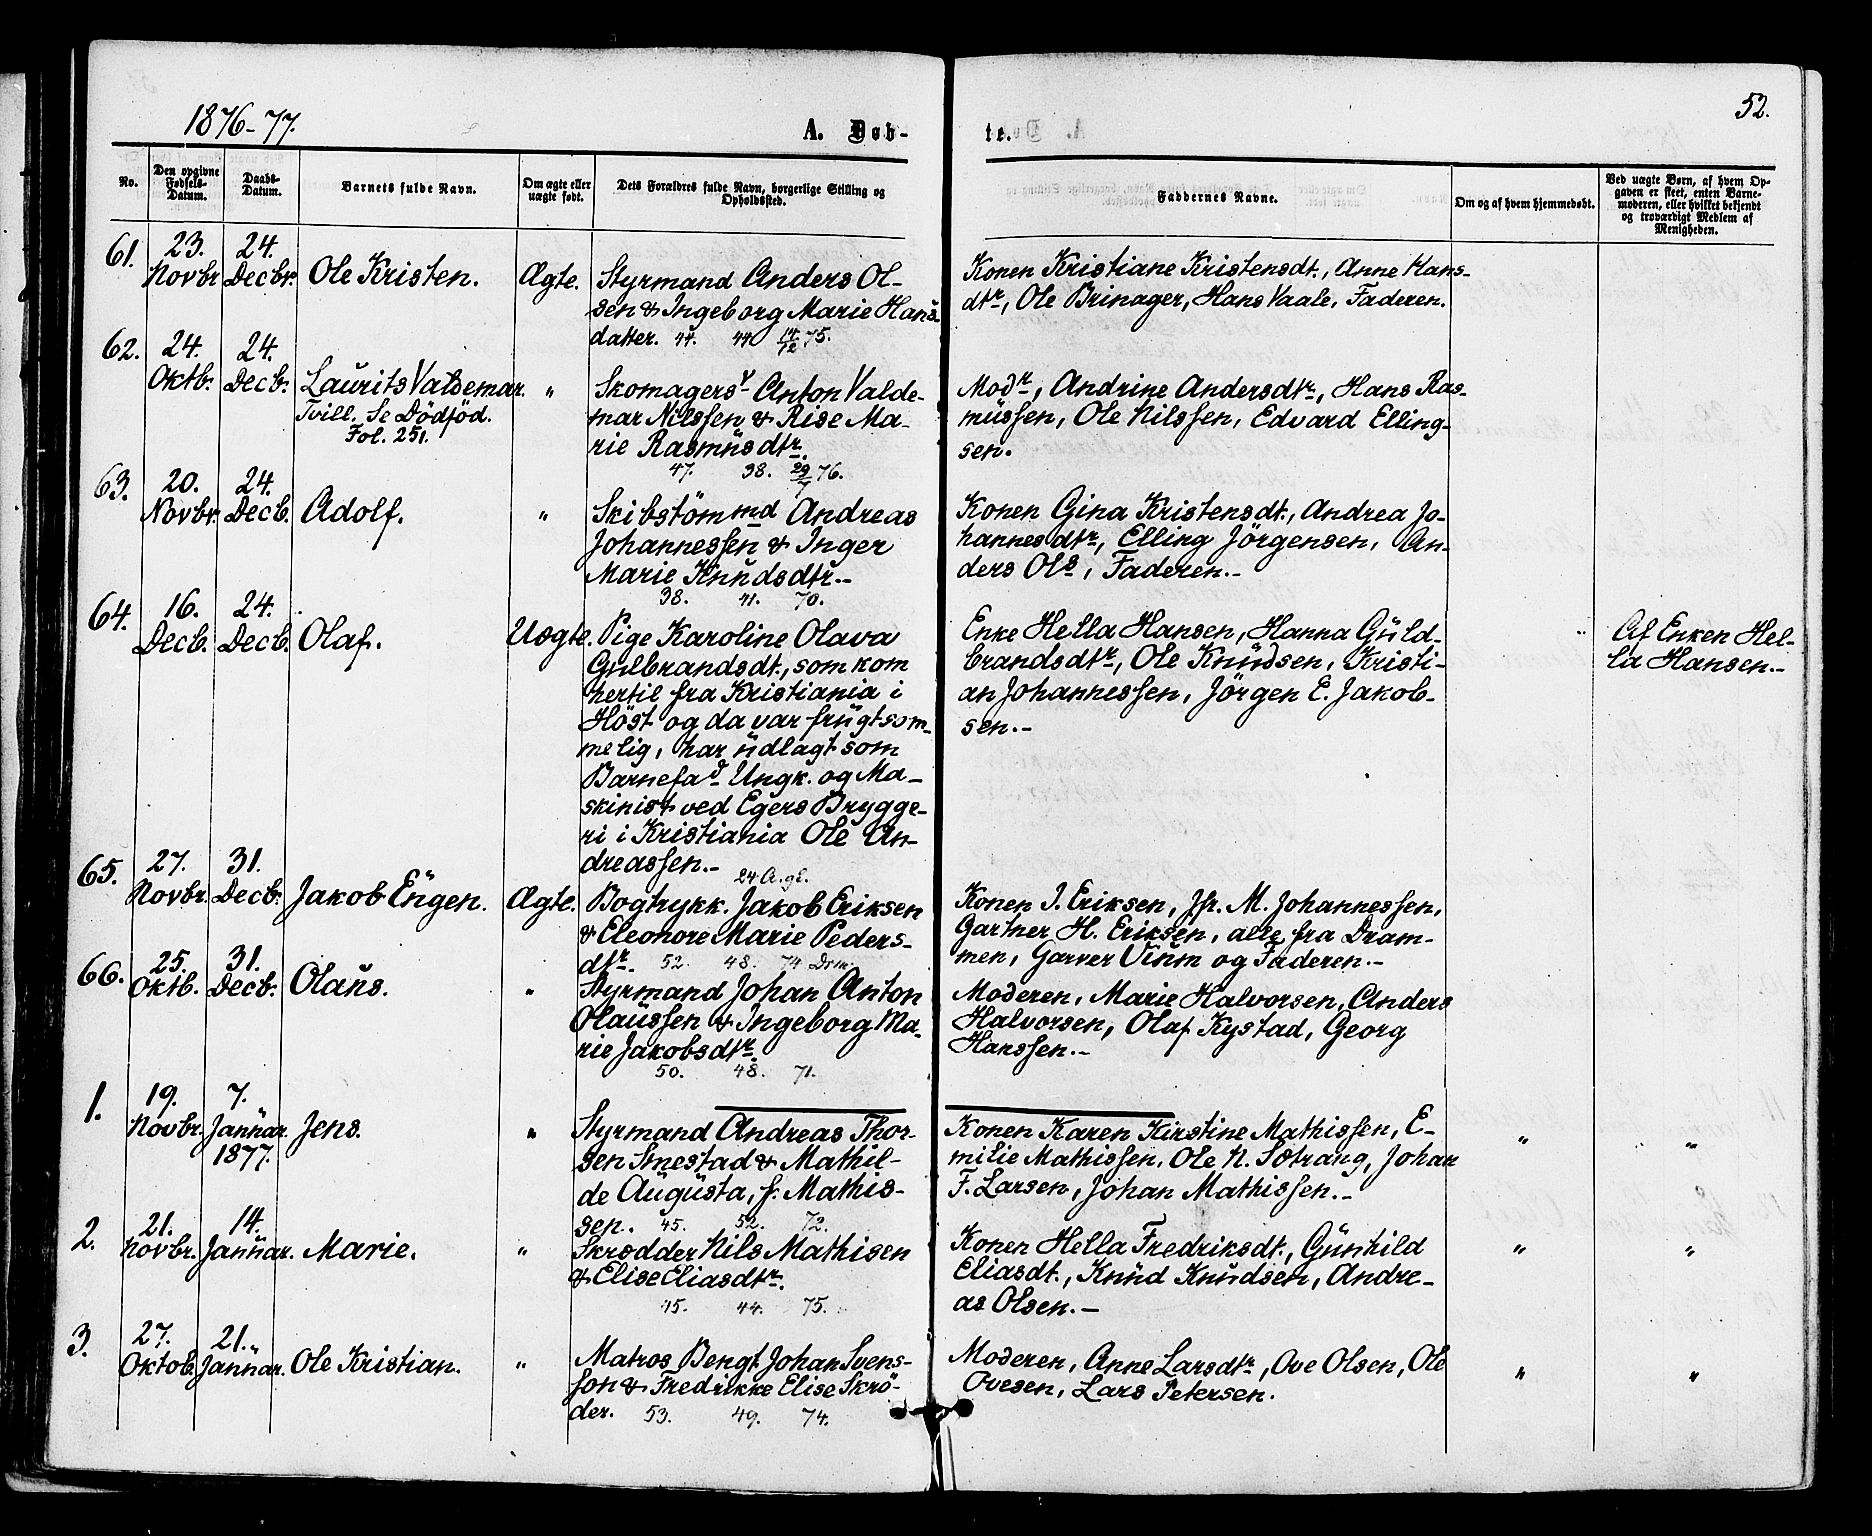 1876-77.
A. Døb-
te.
52.
No.
Den opgivne Fødsels-Datum.
Daabs-Datum.
Barnets fulde Navn.
Om ægte eller uægte født.
Dets Forældres fulde Navn, borgerlige Stilling og Opholdssted.
Faddernes Navne.
Om og af hvem hjemmedøbt.
Ved uægte Børn, af hvem Op-
gaven er skeet, enten Barne-
moderen, eller hvilket bekjendt
og troværdigt Medlem af
Menigheden.
61.
23. Novbr
24. Decbr.
Ole Kristen.
Ægte.
Styrmand Anders Ol-
sen & Ingeborg Marie Hans-
datter. 44. 44 14/12 75.
Konen Kristiane Kristensdt., Anne Hans-
dtr, Ole Brinager, Hans Vaale, Faderen.
62.
24. Oktb.
24. Decb.
Laurits Valdemar.
Tvill. Se Dödföd.
Fol. 251.
"
Skomagersv Anton Valde-
mar Nilssen & Rise Ma-
rie Rasmüsdtr.
47. 38. 29/7 76.
Modr, Andrine Andersdtr, Hans Ras-
müssen, Ole Nilssen, Edvard Elling-
sen.
63.
20. Novbr
24. Decb.
Adolf.
"
Skibstömmd Andreas
Johannessen & Inger
Marie Knüdsdtr.-
38. 41. 70.
Konen Gina Kristensdt., Andrea Jo-
hannesdtr, Elling Jörgensen, An-
ders Ols, Faderen.-
64.
16. Decb.
24. Decb.
Olaf.
Uægte.
Pige Karoline Olava
Gulbrandsdt., som kom
hertil fra Kristiania i
Höst og da var frügtsom-
melig, har üdlagt som
Barnefad Ungk. og Ma-
skinist ved Egers Brygge-
ri i Kristiania Ole An-
dreassen.-
24 A. gl.
Enke Hella Hansen, Hanna Güld-
brandsdtr, Ole Knüdsen, Kristi-
an Johannessen, Jörgen E. Jakob-
sen.-
"
Af Enken Hel-
la Hansen.-
65.
27. Novbr.
31. Decb.
Jakob Eügen.
Ægte.
Bogtrykk. Jakob Eriksen
& Eleonore Marie Peders-
dtr. 52. 48. 74 Drm.
Konen J. Eriksen, Jfr. M. Johannessen,
Gartner H. Eriksen, alle fra Dram-
men, Garver Vinm og Faderen.-
66.
25. Oktb.
31. Decb.
Olaüs.
"
Styrmand Johan Anton
Olaussen & Ingeborg Ma-
rie Jakobsdtr.
50. 48. 71.
Moderen, Marie Halvorsen, Anders
Halvorsen, Olaf Kystad, Georg
Hanssen.-
1.
19. Novbr.
7. Janüar. 1877.
Jens.
"
Styrmand Andreas Thor-
sen Smestad & Mathil-
de Augüsta, f. Mathis-
sen. 45. 52. 72.
Konen Karen Kirstine Mathissen, E-
milie Mathissen, Ole N. Sætrang, Johan
F. Larsen, Johan Mathissen.-
"
"
2.
21. Novbr.
14. Janüar.
Marie.
"
Skrædder Nils Mathisen
& Elise Eliasdtr.
45. 44. 75.
Konen Hella Fredriksdt., Günhild
Eliasdt., Knüd Knudsen, Andre-
as Olsen.-
"
"
3.
27. Oktob.
21. Janüar.
Ole Kristian.
"
Matros Bengt Johan Svens-
son & Fredrikke Elise Skrö-
der. 53. 49. 74.
Moderen, Anne Larsdtr, Ove Olsen, Ole
Ovesen, Lars Petersen.
"
"